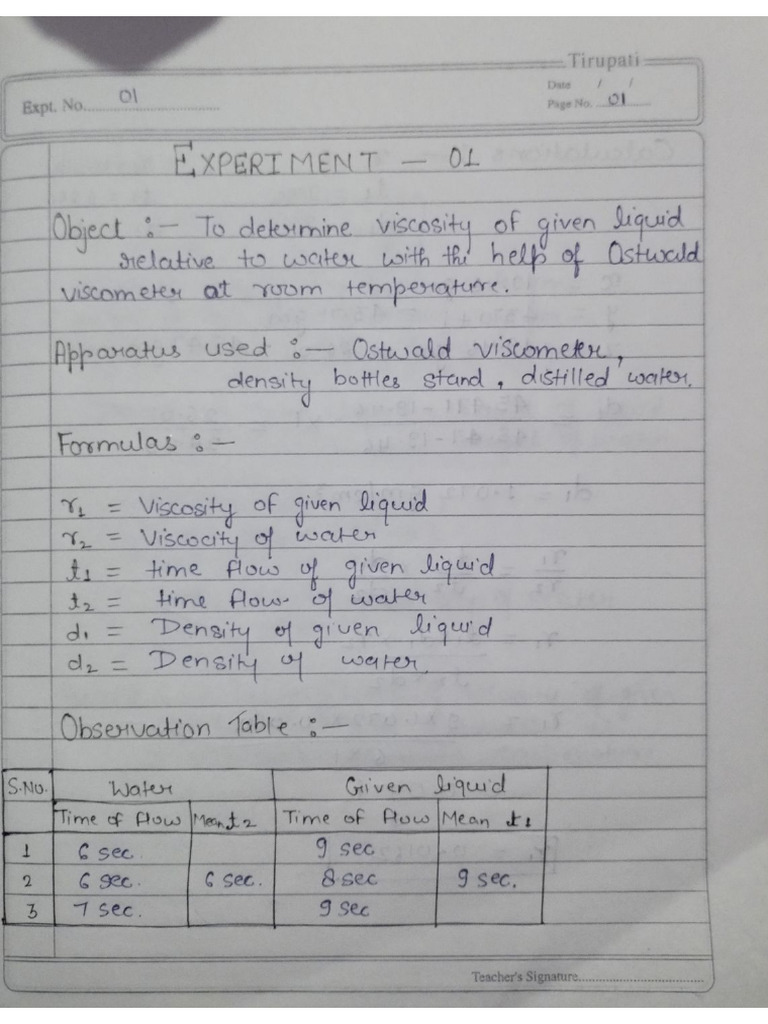 Tirupati
Expt. No. 01
Date / /
Page No. 01
EXPERIMENT – 01
Object :– To determine viscosity of given liquid
relative to water with the help of Ostwald
viscometer at room temperature.
Apparatus used :– Ostwald viscometer,
density bottles stand, distilled water.
Formulas :–
r1 = Viscosity of given liquid
r2 = Viscocity of water
t1 = time flow of given liquid
t2 = time flow of water
d1 = Density of given liquid
d2 = Density of water.
Observation Table :–
S.No. Water Given liquid
Time of flow Mean t2 Time of flow Mean t1
1 6 sec. 9 sec
2 6 sec. 6 sec. 8 sec 9 sec.
3 7 sec. 9 sec
Teacher's Signature